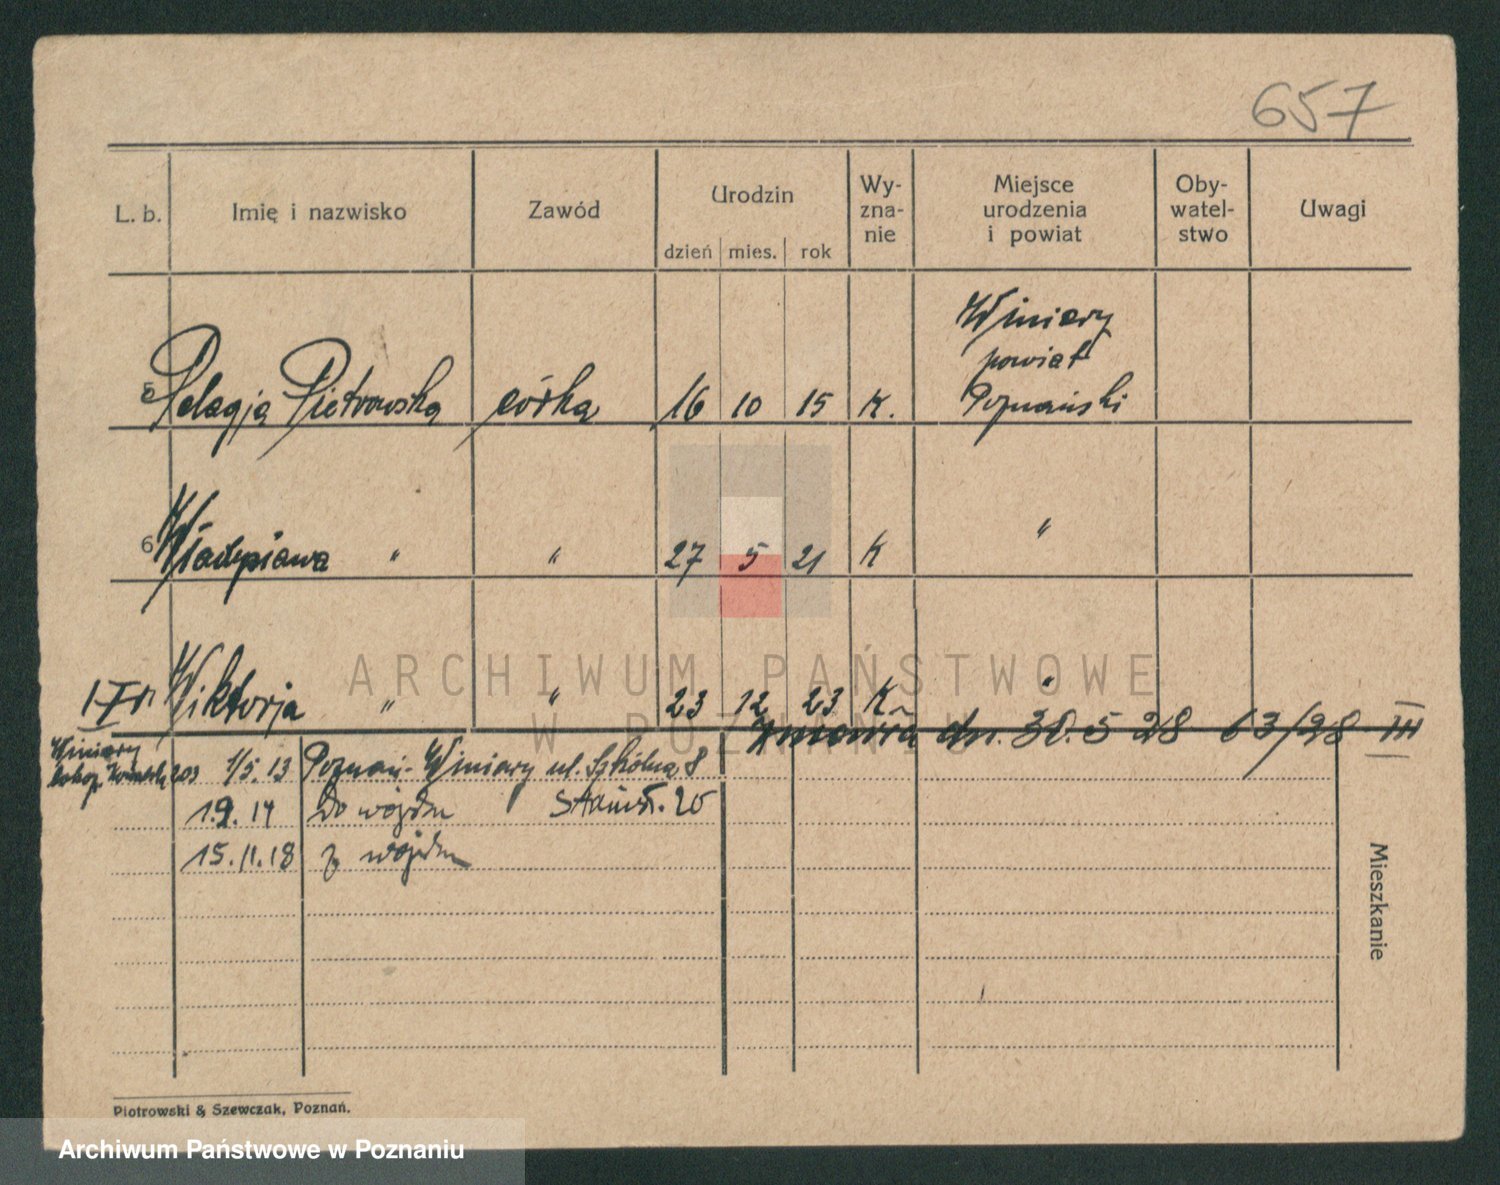 657
L. b. Imię i nazwisko Zawód Urodzin dzień mies. rok Wy-zna-nie Miejsce urodzenia i powiat Oby-watel-stwo Uwagi
Winiary
powiat
5 Pelagja Pietrowska córka 16 10 15 K. Poznański
6 " " 27 5 21 K "
Wiktorja " " 23 12 23 K "
zmarła dn. 30. 5 28 63/28 III
Winiary
203 1/5. 13 Poznań-Winiary ul. Szkólna 8
1.9. 14 Do wojska 20
15. 11. 18 z wojska
Mieszkanie
Piotrowski & Szewczak, Poznań.
ARCHIWUM PAŃSTWOWE
W POZNANIU
Archiwum Państwowe w Poznaniu